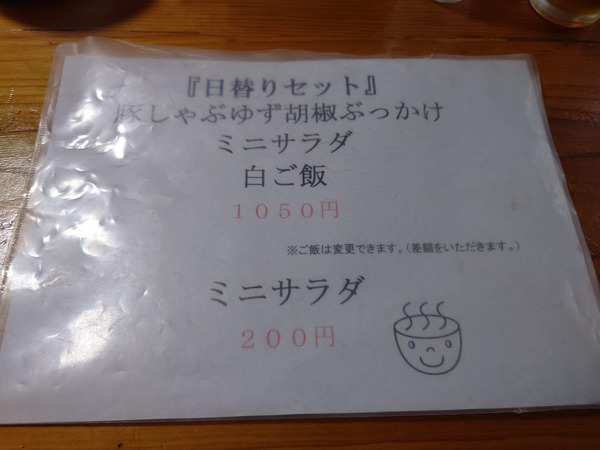 『日替りセット』
豚しゃぶゆず胡椒ぶっかけ
ミニサラダ
白ご飯
1050円
※ご飯は変更できます。(差額をいただきます。)
ミニサラダ
200円